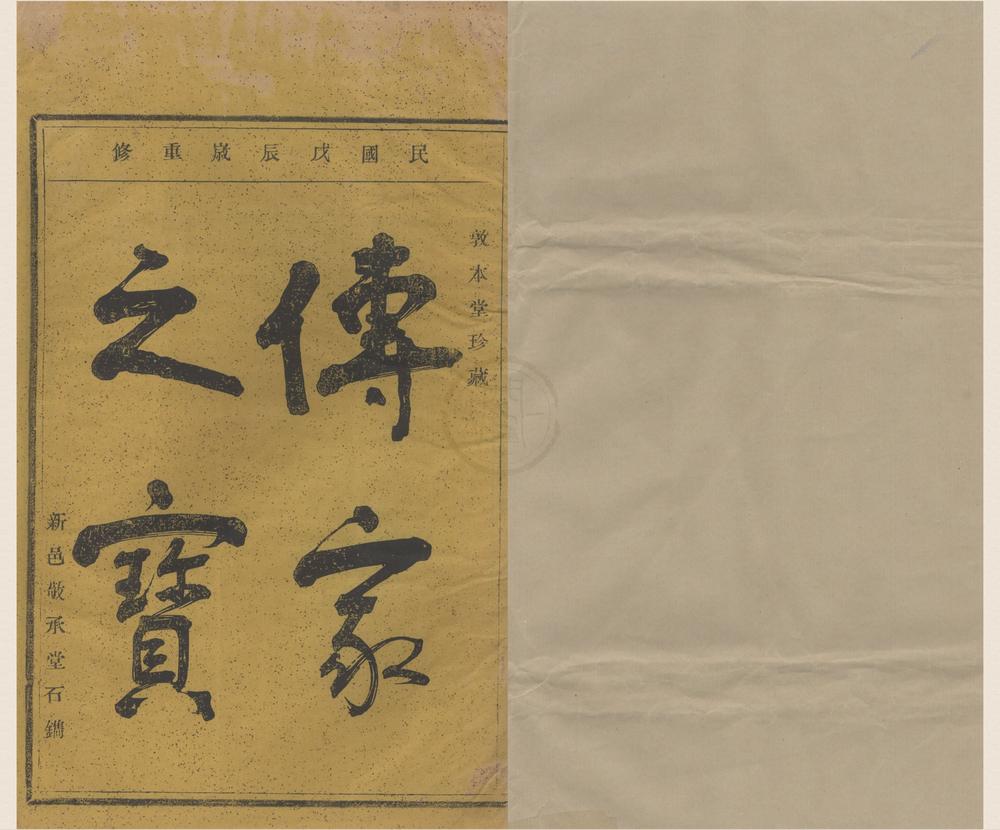 民國戊辰歳重修
敦本堂珍藏
傳家
之寶
新邑敬承堂石鐫